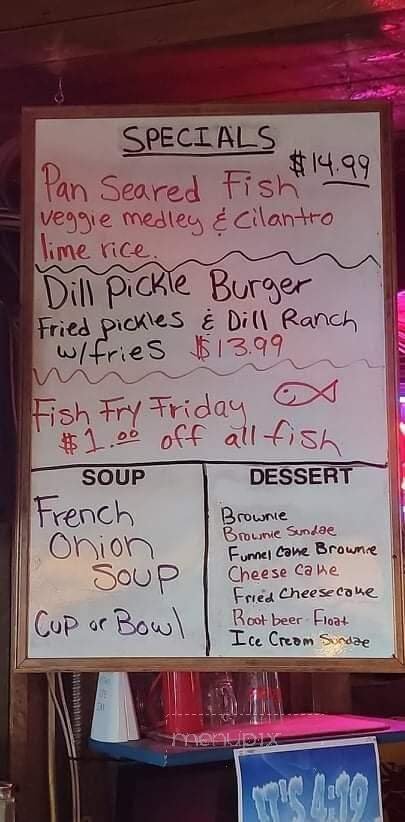 SPECIALS
$14.99
Pan Seared Fish
veggie medley & cilantro
lime rice.
Dill Pickle Burger
Fried pickles & Dill Ranch
w/fries $13.99
Fish Fry Friday
$1.00 off all fish
SOUP
French
Onion
Soup
Cup or Bowl
DESSERT
Brownie
Brownie Sundae
Funnel Cake Brownie
Cheese Cake
Fried Cheesecake
Root beer Float
Ice Cream Sundae
menupix
IT'S 4:19